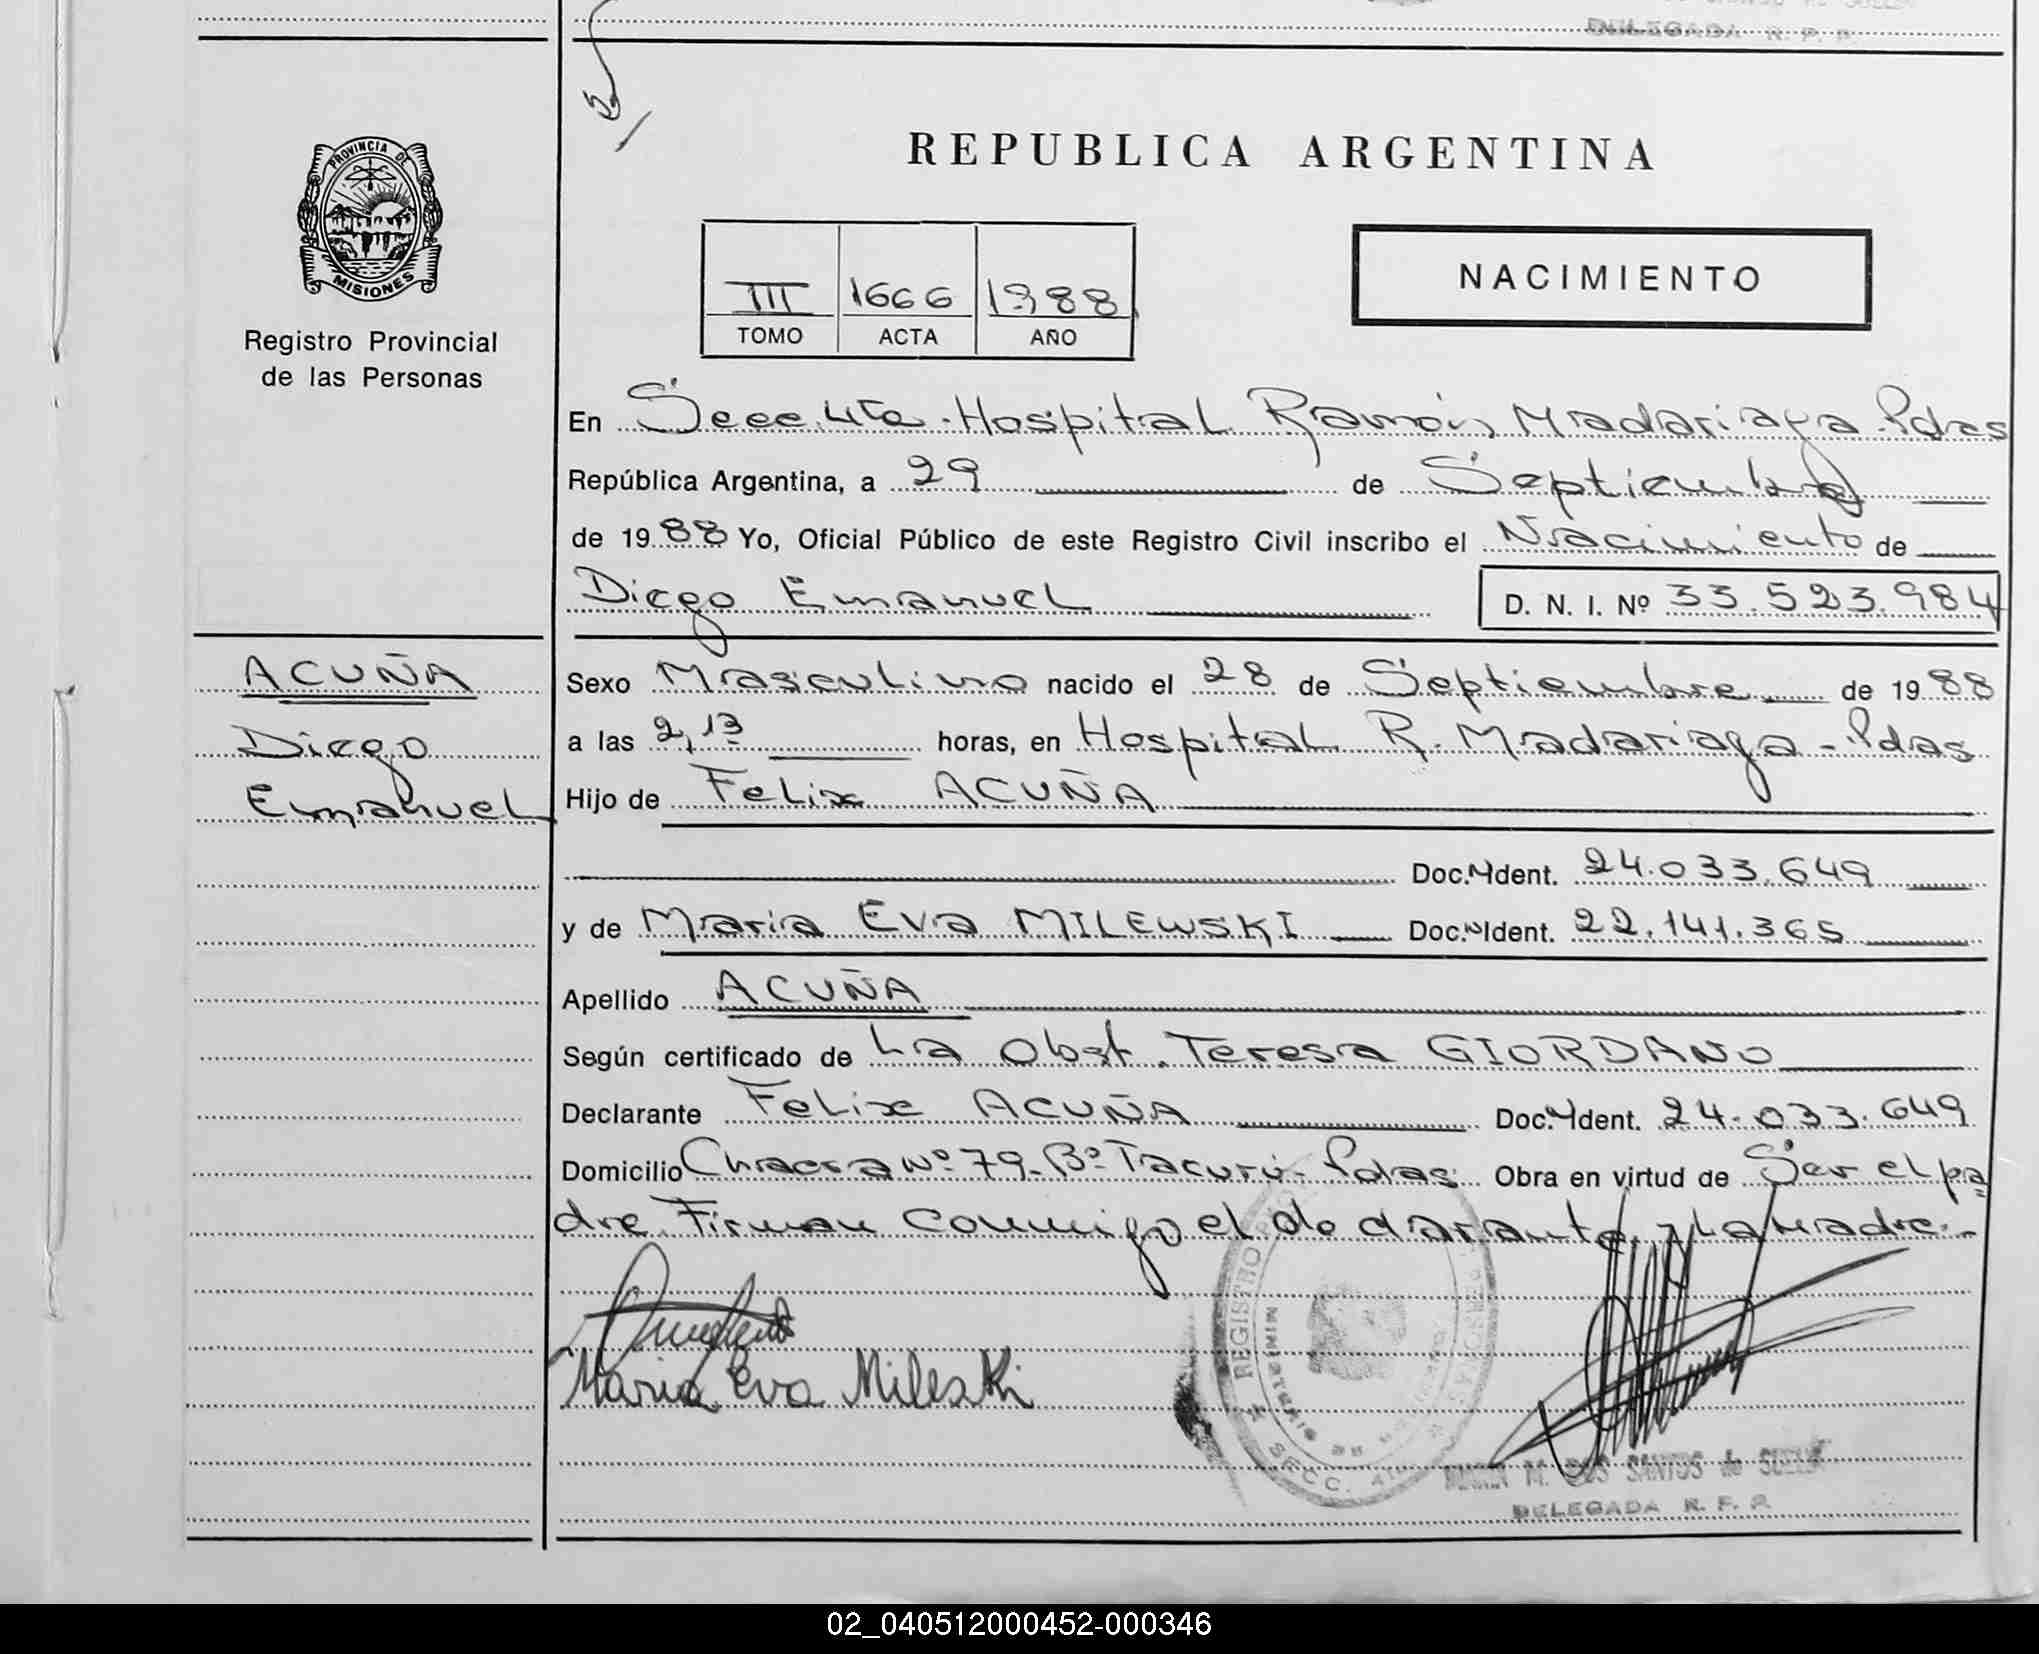 DELEGADA R. P. P.
PROVINCIA DE
MISIONES
Registro Provincial
de las Personas
REPUBLICA ARGENTINA
III 1666 1988
TOMO ACTA AÑO
NACIMIENTO
En Secc. 4ta. Hospital Ramón Madariaga. Pdas
República Argentina, a 29 de Septiembre
de 1988 Yo, Oficial Público de este Registro Civil inscribo el Nacimiento de
Diego Emanuel D. N. I. Nº 33.523.984
ACUÑA
Diego
Emanuel
Sexo Masculino nacido el 28 de Septiembre de 1988
a las 2,13 horas, en Hospital R. Madariaga - Pdas
Hijo de Felix ACUÑA
Doc. Ident. 24.033.649
y de Maria Eva MILEWSKI Doc. Ident. 22.141.365
Apellido ACUÑA
Según certificado de La Obst. Teresa GIORDANO
Declarante Felix ACUÑA Doc. Ident. 24.033.649
Domicilio Chacra Nº 79 - Bº Tacurú - Pdas. Obra en virtud de Ser el pa
dre. Firman conmigo el declarante y la madre.-
Maria Eva Mileski
REGISTRO
SECC. 4ta
DOS SANTOS de
DELEGADA R. P. P.
02_040512000452-000346